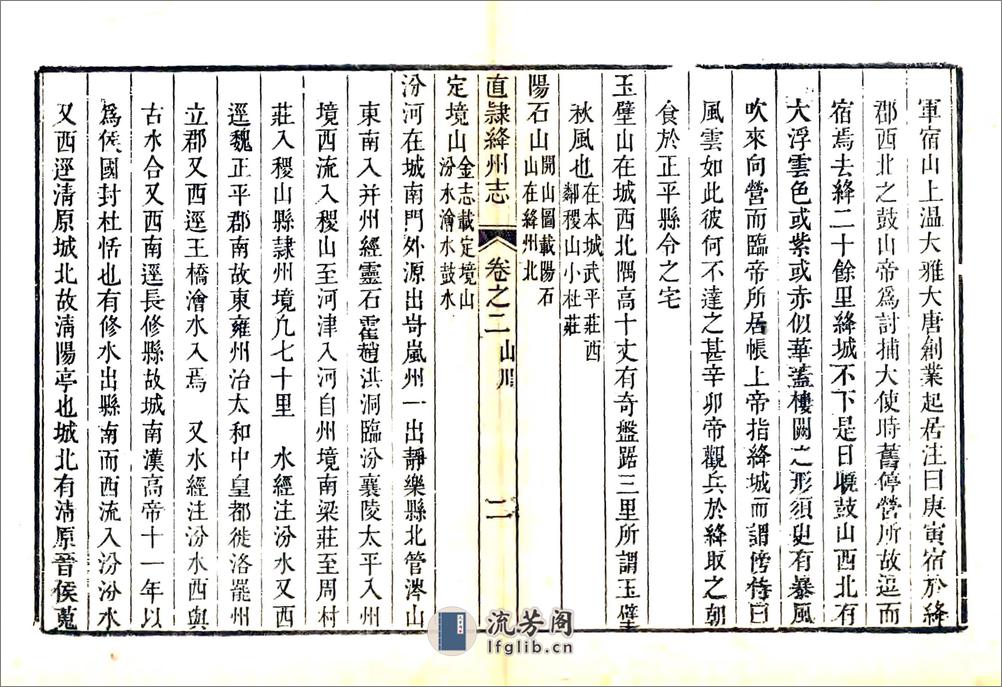 軍宿山上温大雅大唐創業起居注曰庚寅宿於絳
郡西北之鼓山帝爲討捕大使時舊停營所故逗而
宿焉去絳二十餘里絳城不下是日曉鼓山西北有
大浮雲色或紫或赤似華葢樓闕之形須臾有暴風
吹來向營而臨帝所居帳上帝指絳城而謂傍侍曰
風雲如此彼何不達之甚辛卯帝觀兵於絳取之朝
食於正平縣令之宅
玉壁山在城西北隅高十丈有奇盤踞三里所謂玉壁
秋風也在本城武平莊西鄰稷山小杜莊
陽石山開山圖載陽石山在絳州北
直隸絳州志 卷之二 山川 二
定境山金志載定境山汾水澮水鼓水
汾河在城南門外源出岢嵐州一出靜樂縣北管涔山
東南入并州經靈石霍趙洪洞臨汾襄陵太平入州
境西流入稷山至河津入河自州境南梁莊至周村
莊入稷山縣隷州境凢七十里 水經注汾水又西
逕魏正平郡南故東雍州治太和中皇都徙洛罷州
立郡又西逕王橋澮水入焉 又水經注汾水西與
古水合又西南逕長修縣故城南漢高帝十一年以
爲侯國封杜恬也有修水出縣南而西流入汾汾水
又西逕淸原城北故淸陽亭也城北有淸原晉侯蒐
流芳阁
lfglib.cn